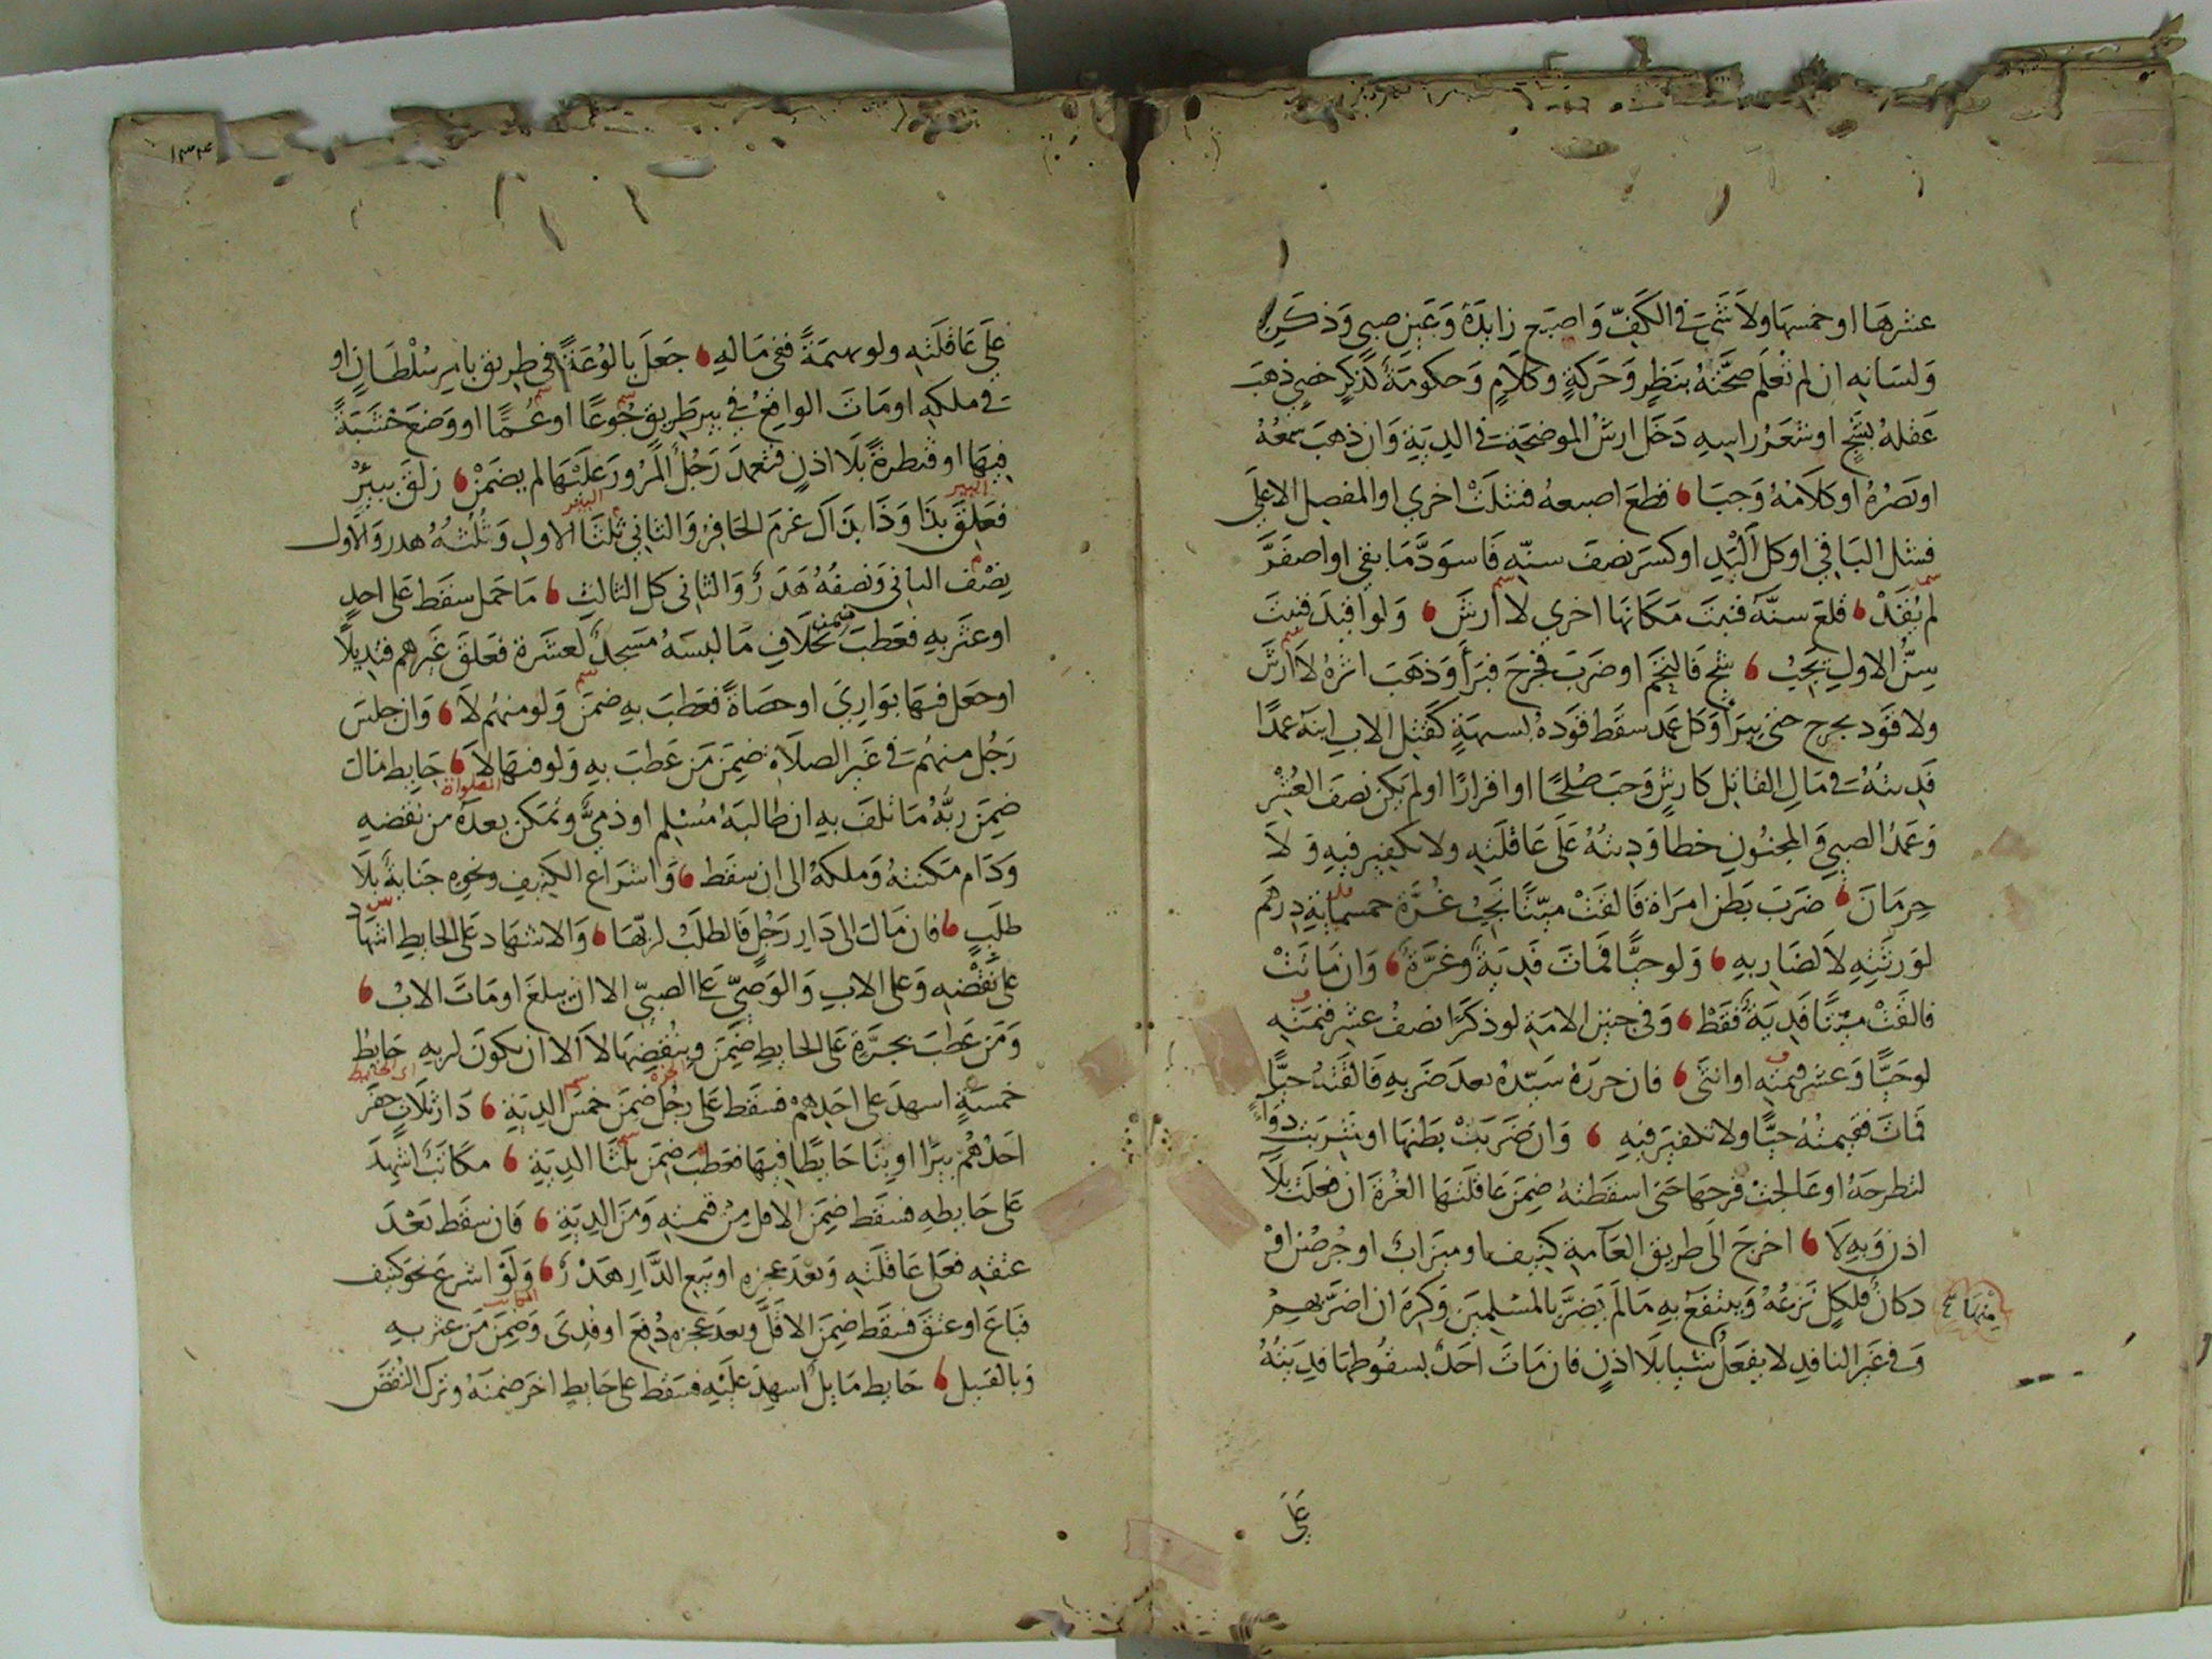 عشرها او خمسها ولا شئ في الكف واصبع زايدة وعين صبي وذكره
ولسانه ان لم تعلم صحته بنظر وحركة وكلام وحكومة كذكر خصي ذهب
عقله بشج او شعر راسه دخل ارش الموضحة في الدية وان ذهب سمعه
او بصره او كلامه وجبا قطع اصبعه فشلت اخري او المفصل الاعلي
فشل الباقي او كل اليد او كسر نصف سنه فاسود ما بقي او اصفر
لم يقد قلع سنه فنبت مكانها اخري لا ارش ولو اقيد فنبت
سن الاول يجب شج فالتحم او ضرب فجرح فبرأ وذهب اثره لا ارش
ولا قود بجرح حتى يبرأ وكل عمد سقط قوده لشبهة كقتل الاب ابنه عمدا
فديته في مال القاتل كارش وجب صلحا او اقرارا او لم يكن نصف العشر
وعمد الصبي والمجنون خطا وديته على عاقلته ولا تكفير فيه ولا
حرمان ضرب بطن امراة فالقت ميتا تجب غرة خمسماية درهم
لورثته لا لضاربه ولو حيا فمات فدية وغرة وان ماتت
فالقت ميتا فدية فقط وفي جنين الامة لو ذكرا نصف عشر قيمته
لو حيا وعشر قيمته او انثى فان حرره سيده بعد ضربه فالقته حيا
فمات فقيمته حيا ولا تكفير فيه وان ضربت بطنها او شربت دواء
لتطرحه او عالجت فرجها حتى اسقطته ضمن عاقلتها الغرة ان فعلت بلا
اذن وبه لا اخرج الى طريق العامة كنيفا او ميزابا او جرصنا او
دكانا فلكل نزعه وينتفع به ما لم يضر بالمسلمين وكره ان اضر بهم
منهما
وفي غير النافد لا يفعل شيا بلا اذن فان مات احد بسقوطها فديته
علي
١٣٤
علي عاقلته ولو بهيمة ففي ماله جعل بالوعة في طريق بامر سلطان او
في ملكه او مات الواقع في بير طريق جوعا او غما او وضع خشبة
فيها او قنطرة بلا اذن فتعمد رجل المرور عليها لم يضمن زلق ببير
فعلق بذا وذا بذاك غرم الحافر والثاني ثلثا الاول وثلثه هدر والاول
نصف الثاني ونصفه هدر والثاني كل الثالث ما حمل سقط على احد
او عثر به فعطب ضمن بخلاف ما لبسه مسجد لعشرة فعلق غيرهم قنديلا
او جعل فيها بواري او حصاة فعطب به ضمن ولو منهم لا وان جلس
رجل منهم في غير الصلاة ضمن من عطب به ولو فيها لا حايط مال
ضمن ربه ما تلف به ان طالبه مسلم او ذمي وتمكن بعده من نقضه
ودام مكنته وملكه الى ان سقط واشراع الكنيف ونحوه جناية بلا
طلب فان مال الى دار رجل فالطلب لربها والاشهاد على الحايط اشهاد
على نقضه وعلى الاب والوصي على الصبي الا ان يبلغ او مات الاب
ومن عطب بجرة على الحايط ضمن وبنقضها لا الا ان تكون لربه حايط
خمسة اشهد على احدهم فسقط على رجل ضمن خمس الدية دار ثلاث حفر
احدهم بيرا او بنا حايطا فيها فعطب ضمن ثلثا الدية مكاتب اشهد
على حايطه فسقط ضمن الاقل من قيمته ومن الدية فان سقط بعد
عتقه فعلى عاقلته وبعد عجزه او بيع الدار هدر ولو اشرع نحو كنيف
فباع او عتق فسقط ضمن الاقل وبعد عجزه دفع او فدى وضمن من عثر به
وبالقتيل حايط مايل اشهد عليه فسقط على حايط اخر ضمنه وترك النقض